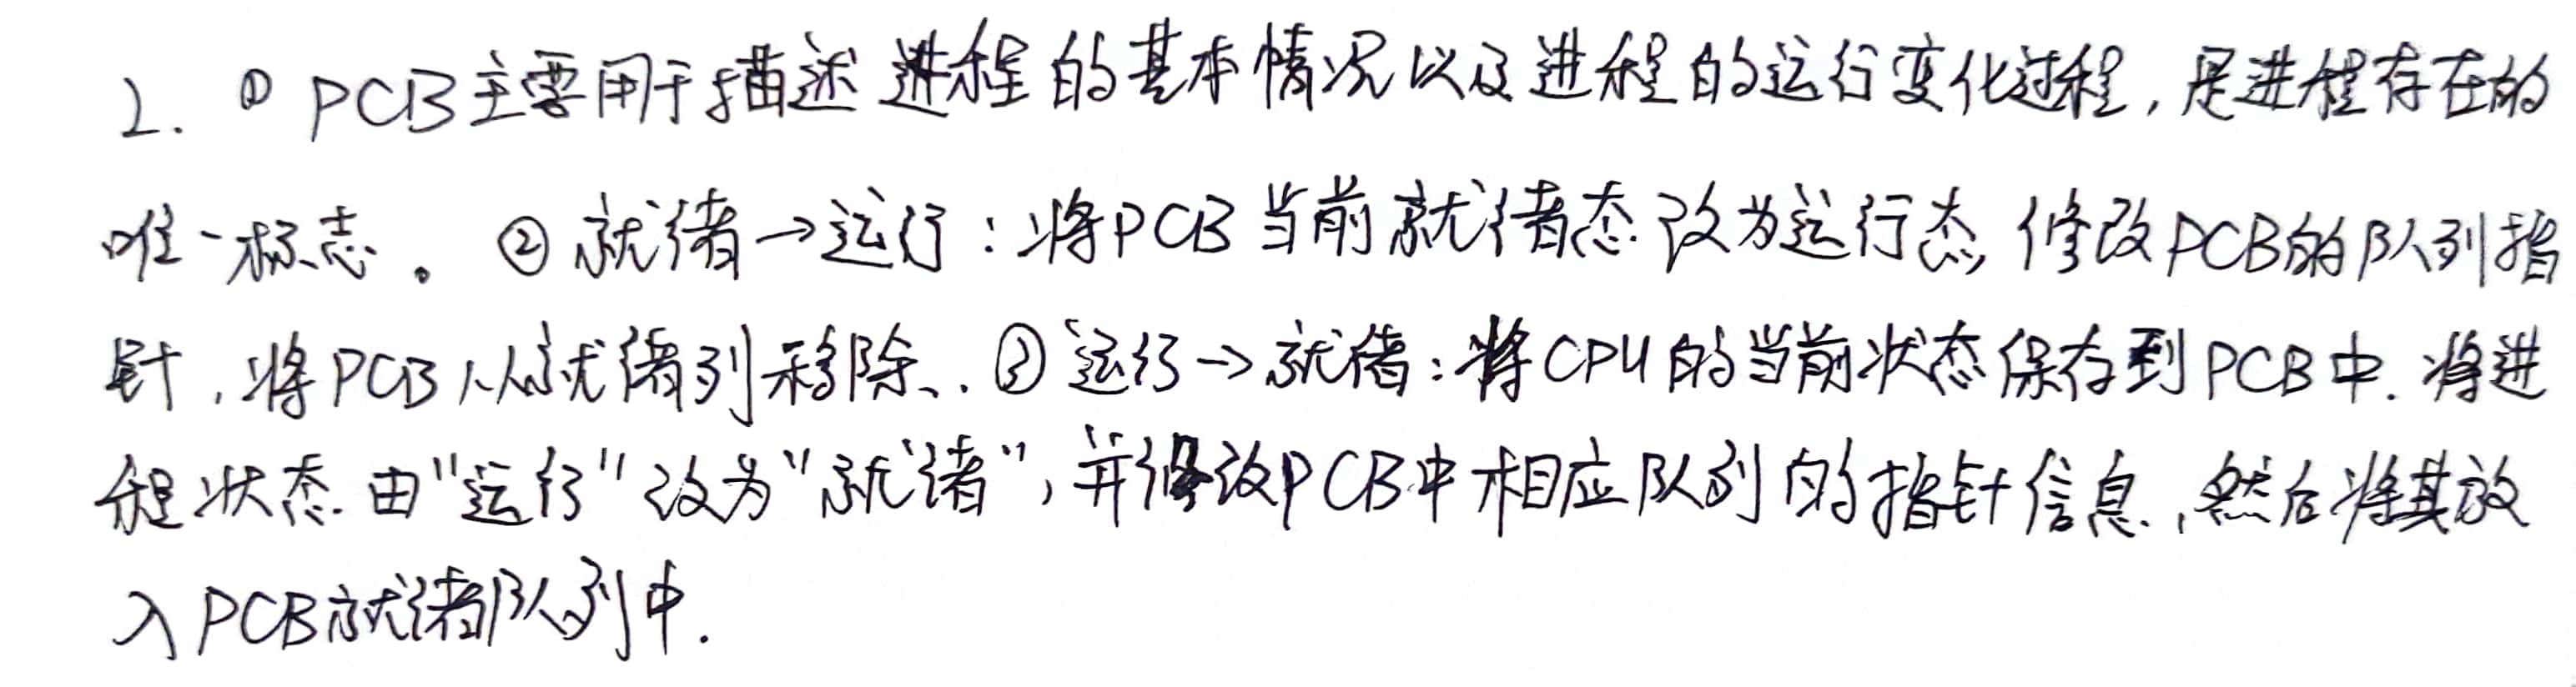 2. ① PCB主要用于描述进程的基本情况以及进程的运行变化过程,是进程存在的
唯一标志。 ② 就绪→运行:将PCB当前就绪态改为运行态,修改PCB的队列指
针,将PCB从就绪列移除. ③ 运行→就绪:将CPU的当前状态保存到PCB中.将进
程状态由"运行"改为"就绪",并修改PCB中相应队列的指针信息,然后将其放
入PCB就绪队列中.